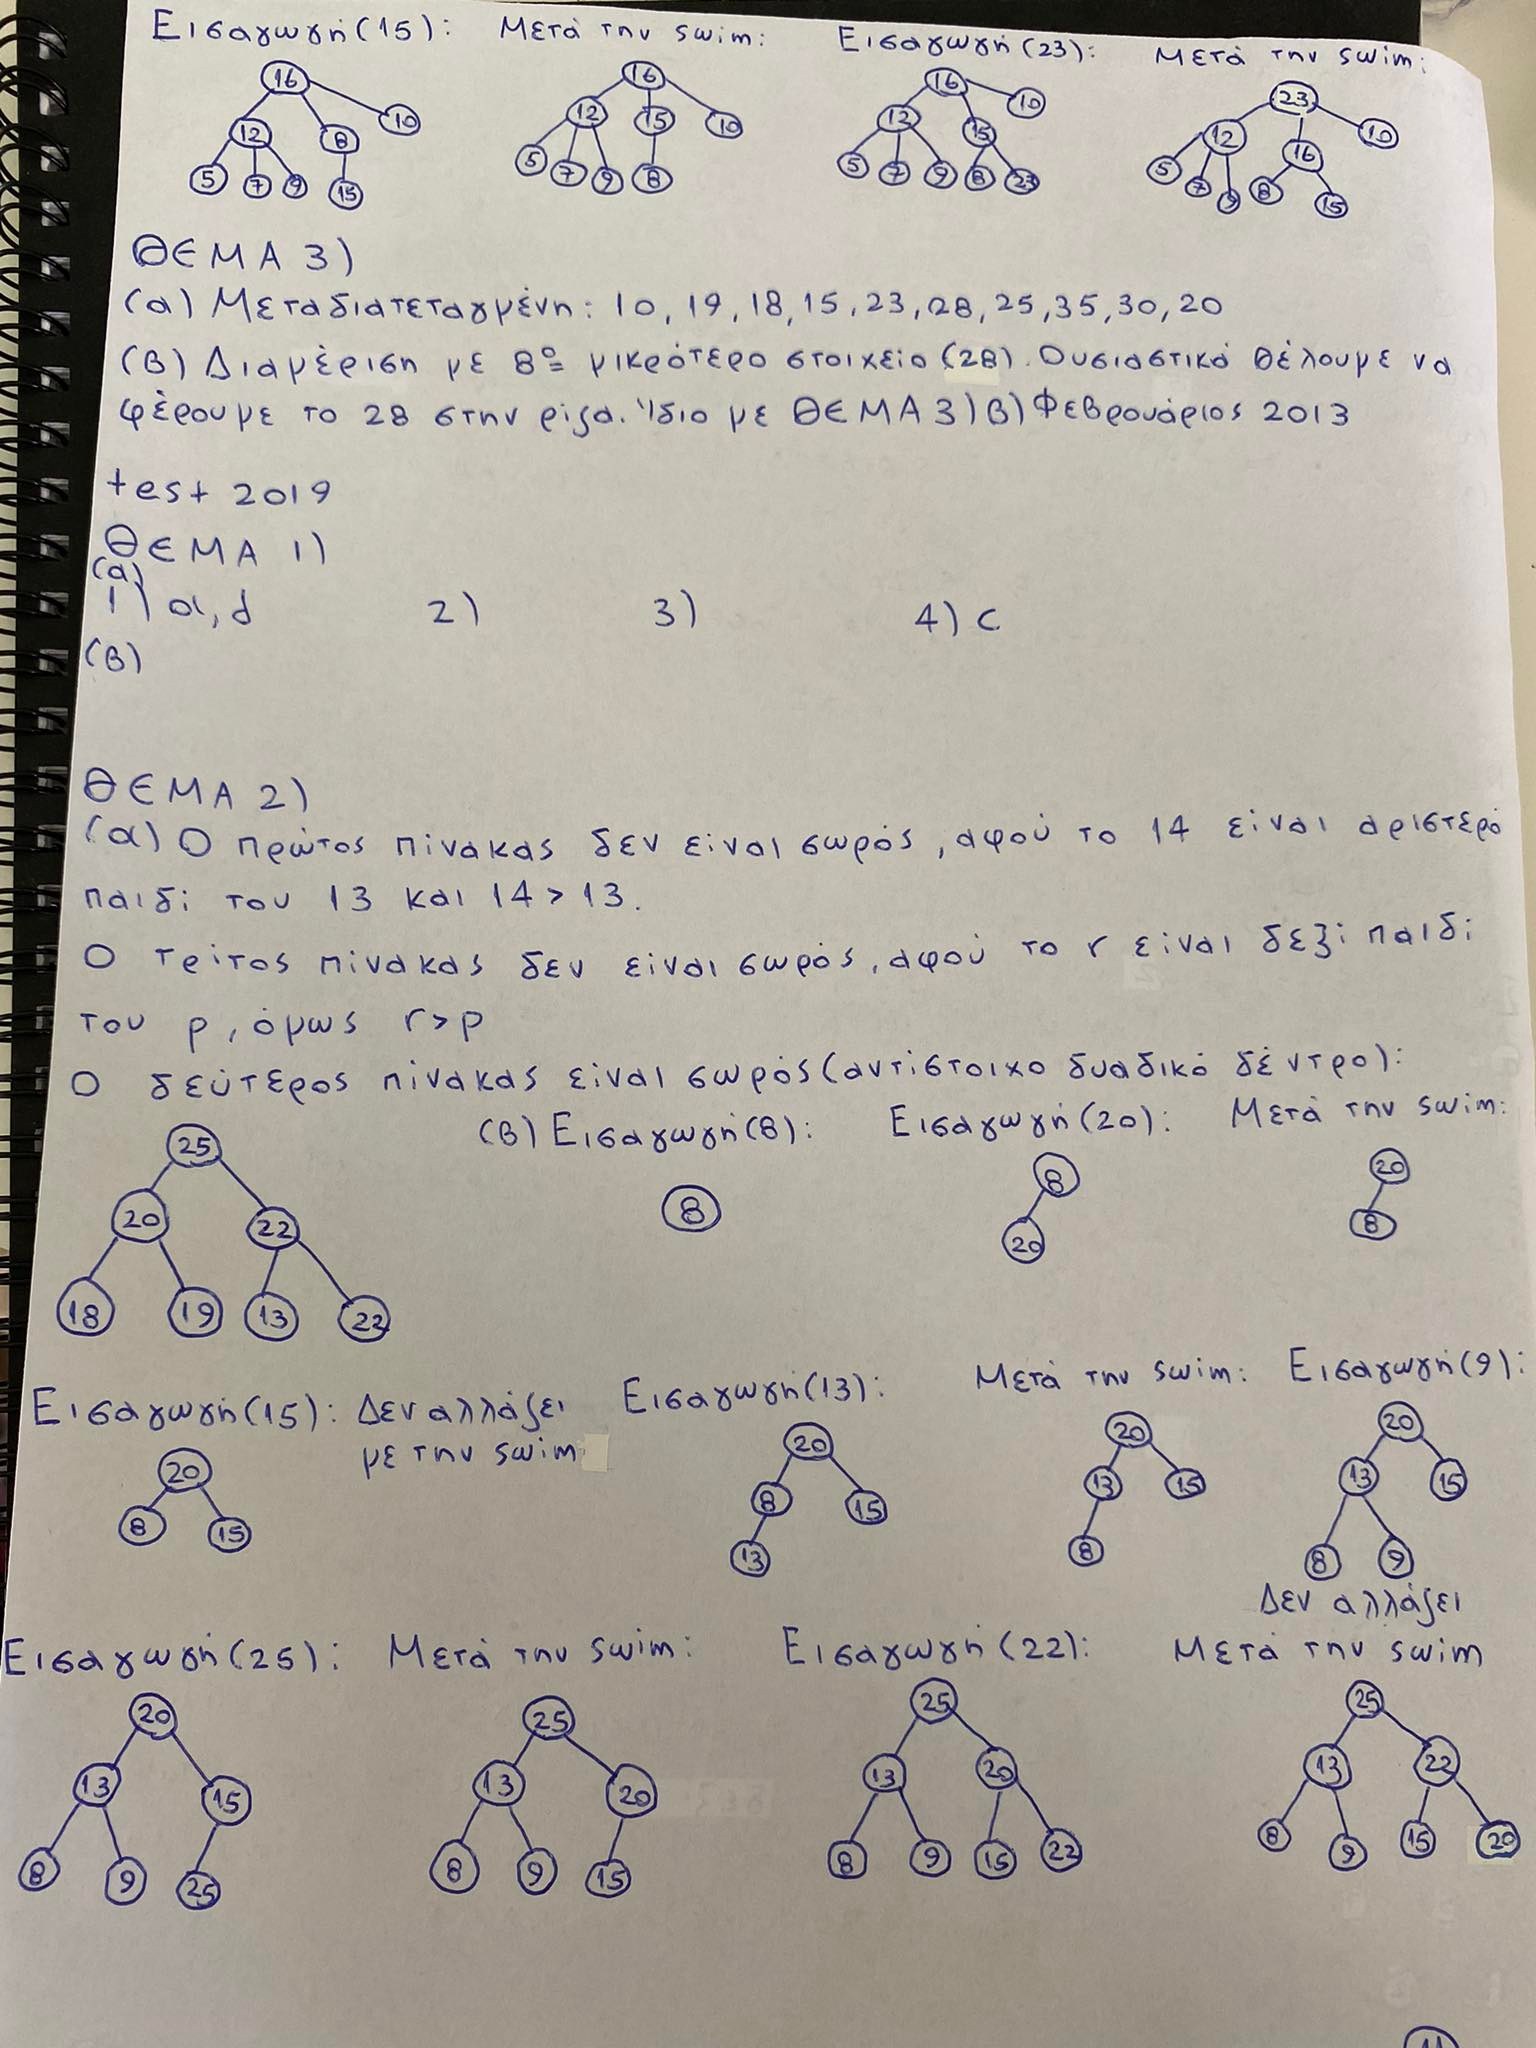 Εισαγωγή(15): Μετά την swim: Εισαγωγή(23): Μετά την swim:
16 16 16 23
12 8 10 12 15 10 12 15 10 12 16 10
5 7 9 15 5 7 9 8 5 7 9 8 23 5 7 9 8 15
ΘΕΜΑ 3)
(α) Μεταδιατεταγμένη: 10, 19, 18, 15, 23, 28, 25, 35, 30, 20
(β) Διαμέριση με 8ο μικρότερο στοιχείο (28). Ουσιαστικά θέλουμε να
φέρουμε το 28 στην ρίζα. Ίδιο με ΘΕΜΑ 3)β) Φεβρουάριος 2013
test 2019
ΘΕΜΑ 1)
(α)
1) a, d 2) 3) 4) c
(β)
ΘΕΜΑ 2)
(α) Ο πρώτος πίνακας δεν είναι σωρός, αφού το 14 είναι αριστερό
παιδί του 13 και 14 > 13.
Ο τρίτος πίνακας δεν είναι σωρός, αφού το r είναι δεξί παιδί
του p, όμως r>p
Ο δεύτερος πίνακας είναι σωρός (αντίστοιχο δυαδικό δέντρο):
(β) Εισαγωγή(8): Εισαγωγή(20): Μετά την swim:
25 8 8 20
20 22 20 8
18 19 13 22
Εισαγωγή(15): Δεν αλλάζει Εισαγωγή(13): Μετά την swim: Εισαγωγή(9):
με την swim
20 20 20 20
8 15 8 15 13 15 13 15
13 8 8 9
Δεν αλλάζει
Εισαγωγή(25): Μετά την swim: Εισαγωγή(22): Μετά την swim
20 25 25 25
13 15 13 20 13 20 13 22
8 9 25 8 9 15 8 9 15 22 8 9 15 20